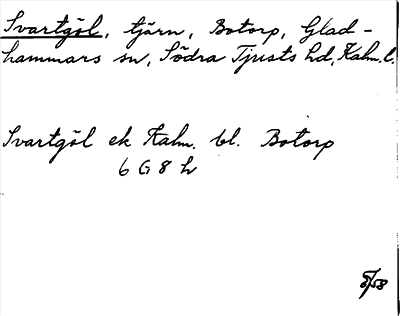 Svartgöl, tjärn, Botorp, Glad-
hammars sn, Södra Tjusts hd, Kalm. l.
Svartgöl ek Kalm. bl. Botorp
6 G 8 h